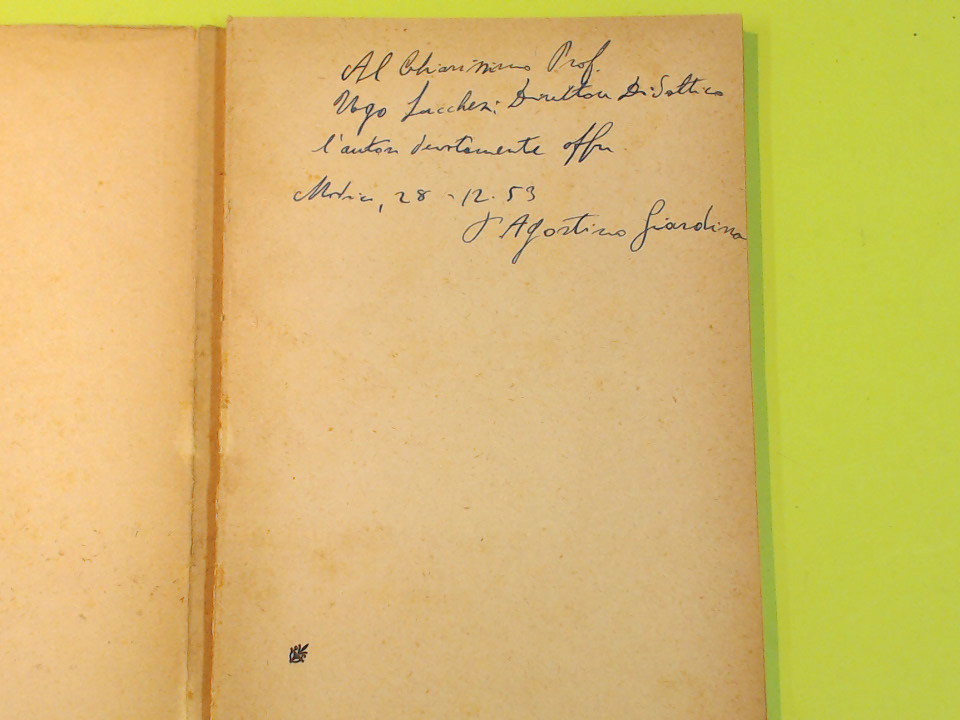 Al Chiarissimo Prof.
Ugo Lucchesi Direttore Didattico
l'autore devotamente offre
Modica, 28-12.53
D'Agostino Giardina